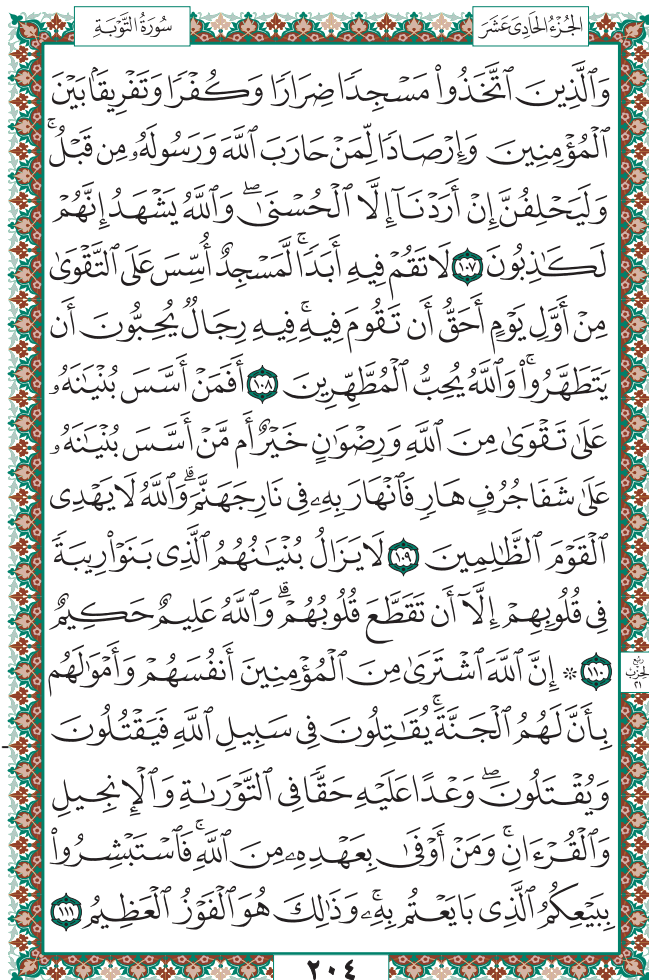 الجُزْءُ الحَادِىَ عَشَرَ
سُورَةُ التَّوْبَةِ
وَٱلَّذِينَ ٱتَّخَذُوا۟ مَسْجِدًا ضِرَارًا وَكُفْرًا وَتَفْرِيقًۢا بَيْنَ
ٱلْمُؤْمِنِينَ وَإِرْصَادًا لِّمَنْ حَارَبَ ٱللَّهَ وَرَسُولَهُۥ مِن قَبْلُ ۚ
وَلَيَحْلِفُنَّ إِنْ أَرَدْنَآ إِلَّا ٱلْحُسْنَىٰ ۖ وَٱللَّهُ يَشْهَدُ إِنَّهُمْ
لَكَـٰذِبُونَ ١٠٧ لَا تَقُمْ فِيهِ أَبَدًا ۚ لَّمَسْجِدٌ أُسِّسَ عَلَى ٱلتَّقْوَىٰ
مِنْ أَوَّلِ يَوْمٍ أَحَقُّ أَن تَقُومَ فِيهِ ۚ فِيهِ رِجَالٌ يُحِبُّونَ أَن
يَتَطَهَّرُوا۟ ۚ وَٱللَّهُ يُحِبُّ ٱلْمُطَّهِّرِينَ ١٠٨ أَفَمَنْ أَسَّسَ بُنْيَـٰنَهُۥ
عَلَىٰ تَقْوَىٰ مِنَ ٱللَّهِ وَرِضْوَٰنٍ خَيْرٌ أَم مَّنْ أَسَّسَ بُنْيَـٰنَهُۥ
عَلَىٰ شَفَا جُرُفٍ هَارٍ فَٱنْهَارَ بِهِۦ فِى نَارِ جَهَنَّمَ ۗ وَٱللَّهُ لَا يَهْدِى
ٱلْقَوْمَ ٱلظَّـٰلِمِينَ ١٠٩ لَا يَزَالُ بُنْيَـٰنُهُمُ ٱلَّذِى بَنَوْا۟ رِيبَةً
فِى قُلُوبِهِمْ إِلَّآ أَن تَقَطَّعَ قُلُوبُهُمْ ۗ وَٱللَّهُ عَلِيمٌ حَكِيمٌ
١١٠ ۞ إِنَّ ٱللَّهَ ٱشْتَرَىٰ مِنَ ٱلْمُؤْمِنِينَ أَنفُسَهُمْ وَأَمْوَٰلَهُم
رُبْعُ
الحِزْبِ
٢١
بِأَنَّ لَهُمُ ٱلْجَنَّةَ ۚ يُقَـٰتِلُونَ فِى سَبِيلِ ٱللَّهِ فَيَقْتُلُونَ
وَيُقْتَلُونَ ۖ وَعْدًا عَلَيْهِ حَقًّا فِى ٱلتَّوْرَىٰةِ وَٱلْإِنجِيلِ
وَٱلْقُرْءَانِ ۚ وَمَنْ أَوْفَىٰ بِعَهْدِهِۦ مِنَ ٱللَّهِ ۚ فَٱسْتَبْشِرُوا۟
بِبَيْعِكُمُ ٱلَّذِى بَايَعْتُم بِهِۦ ۚ وَذَٰلِكَ هُوَ ٱلْفَوْزُ ٱلْعَظِيمُ ١١١
٢٠٤